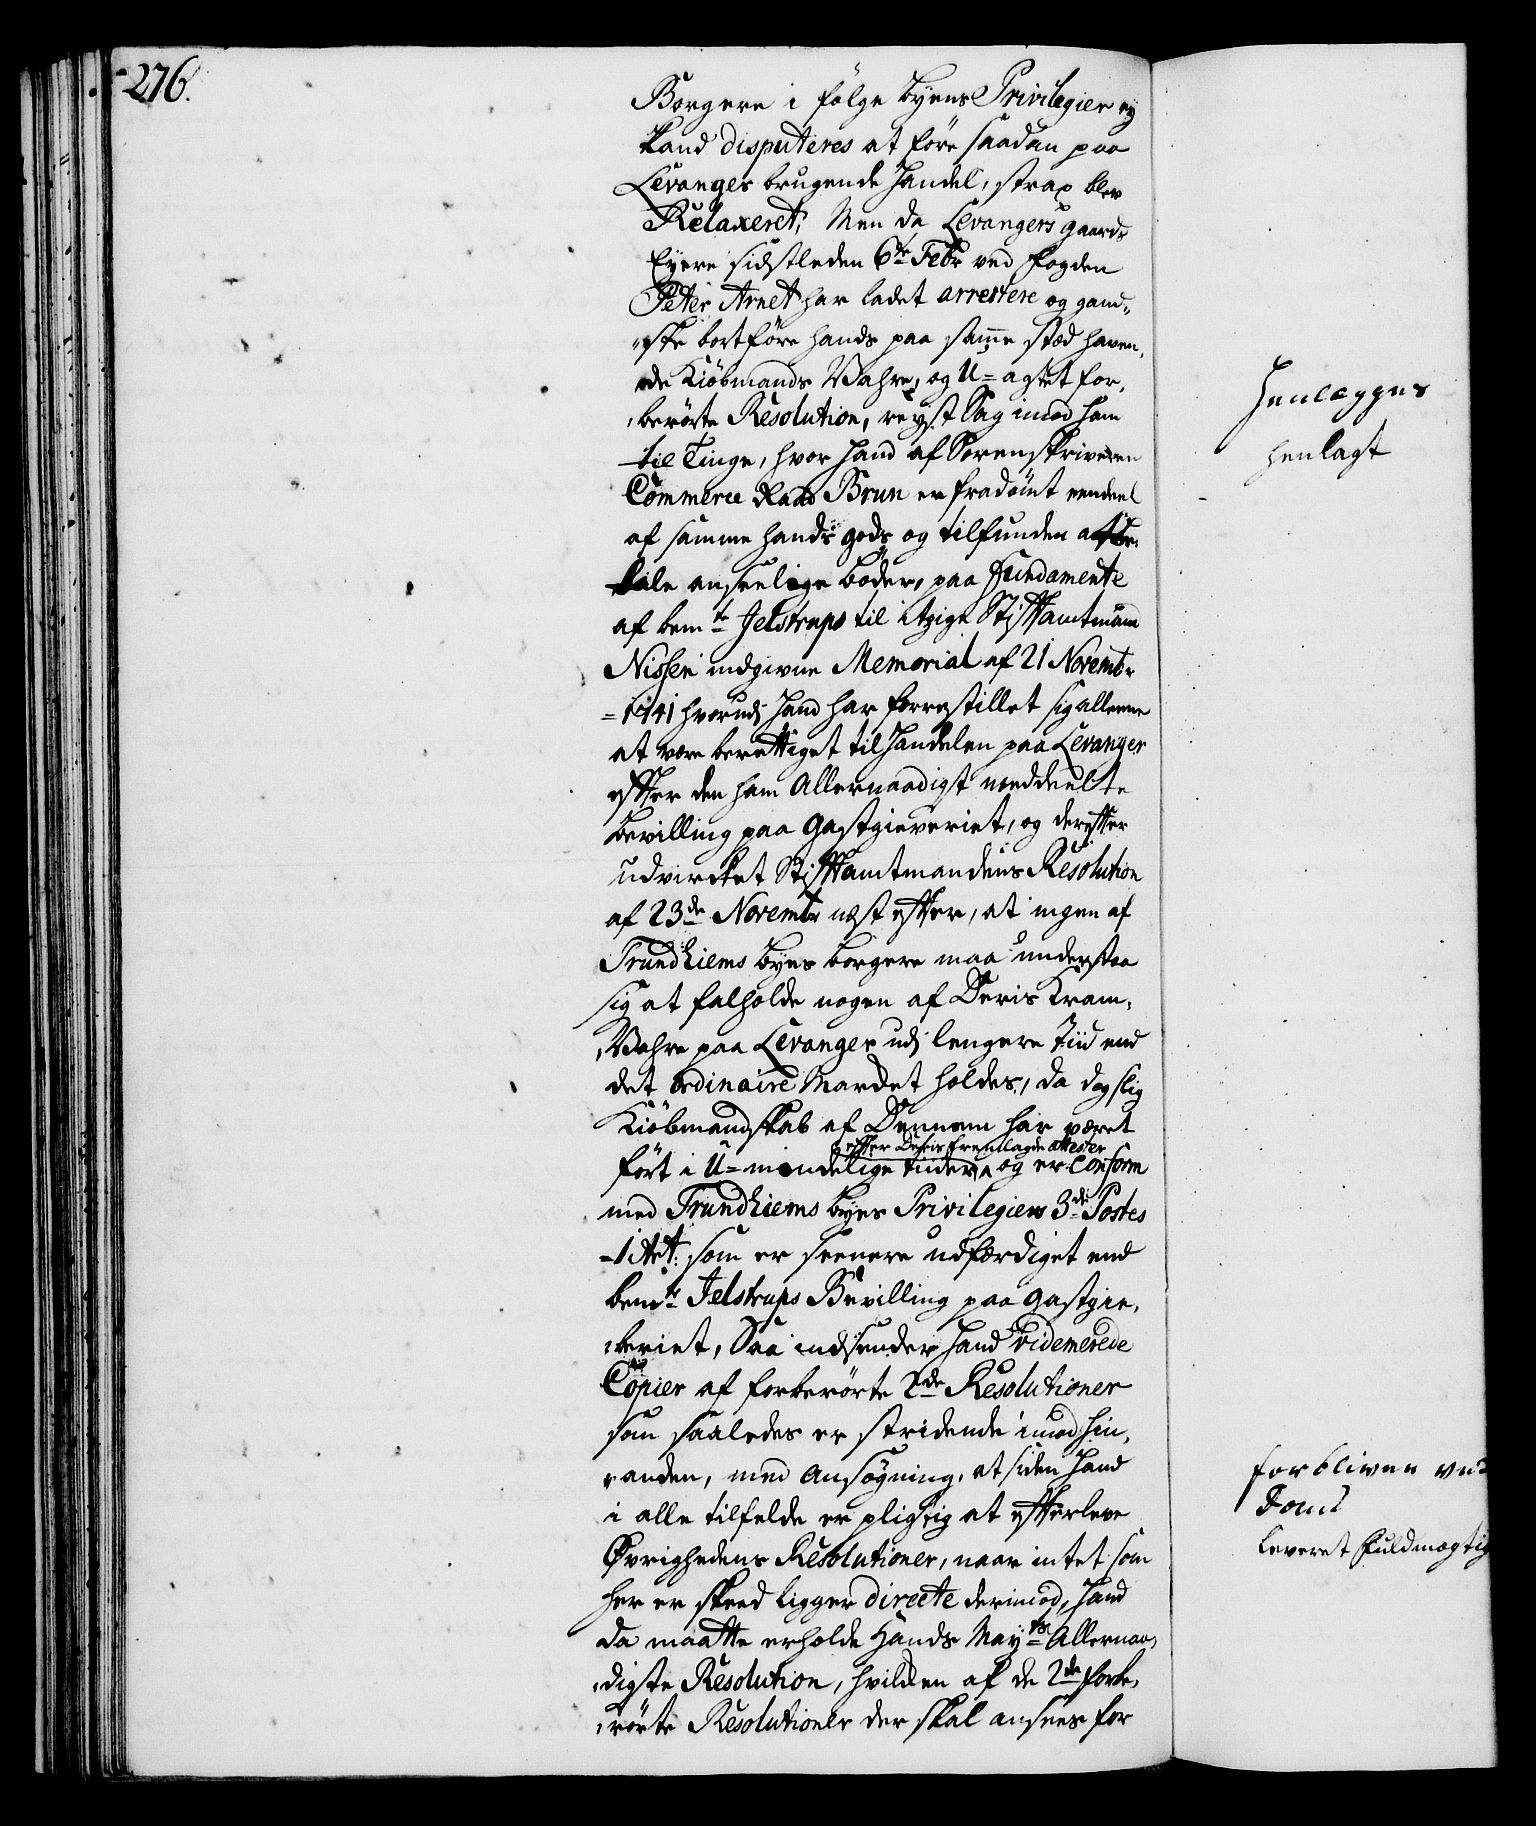 276.
Borgere i følge byens Privilegier ej
kand disputeres at føre saadan paa
Levanger brugende Handel, strax blev
Relaxeret; Men da Levangers gaards
Eyere sidstleden 6te Febr ved fogden
Peter Arnet har ladet arrestere og gand„
„ske bortføre hands paa samme stæd haven„
de Kiøbmands Vahre, og U=agtet for„
„berørte Resolution, reyst Sag imod ham
til Tinge, hvor Hand af Sorenskriveren
Commerce Raad Brun er fradømt eendeel
af samme hands gods og tilfunden at be„
tale anseelige bøder, paa fundamente
af bemte Jelstrups til itzige Stiftamtmand
Nissen indgivne Memorial af 21 Novembr
1741 hvorudj Hand har forrestillet sig alleene
at være berettiget til Handelen paa Levanger
efter den ham Allernaadigst meddeelte
bevilling paa gastgieveriet, og derefter
udvirket Stiftamtmandens Resolution
af 23de Novembr næst efter, at ingen af
Trundhiems byes borgere maa understaa
sig at falholde nogen af Deris Kram„
„Vahre paa Levanger udj lengere Tiid end
det ordinaire Marcket holdes, da dog slig
Kiøbmandskab af Dennem har været
efter Deris fremlagde attester
ført i U=mindelige tiider, og er conform
med Trundhiems byes Privilegiers 3de Postes
1 Art: som er seenere udfærdiget end
bemte Jelstrups Bevilling paa gastgie„
„veriet, Saa indsender Hand videmerede
Copier af forberørte 2de Resolutioner
som saaledes er stridende imod hin„
„anden, med Ansøgning, at siden Hand
i alle tilfelde er pligtig at efterleve
Øvrighedens Resolutioner, naar intet som
her er skeed ligger directe derimod, Hand
da maatte erholde Hands Mayts Allernaa„
„digste Resolution, hvilken af de 2de forbe„
„rørte Resolutioner der skal ansees for
Henlegges
henlagt
forbliver ved
Dom
leveret fuldmægtig